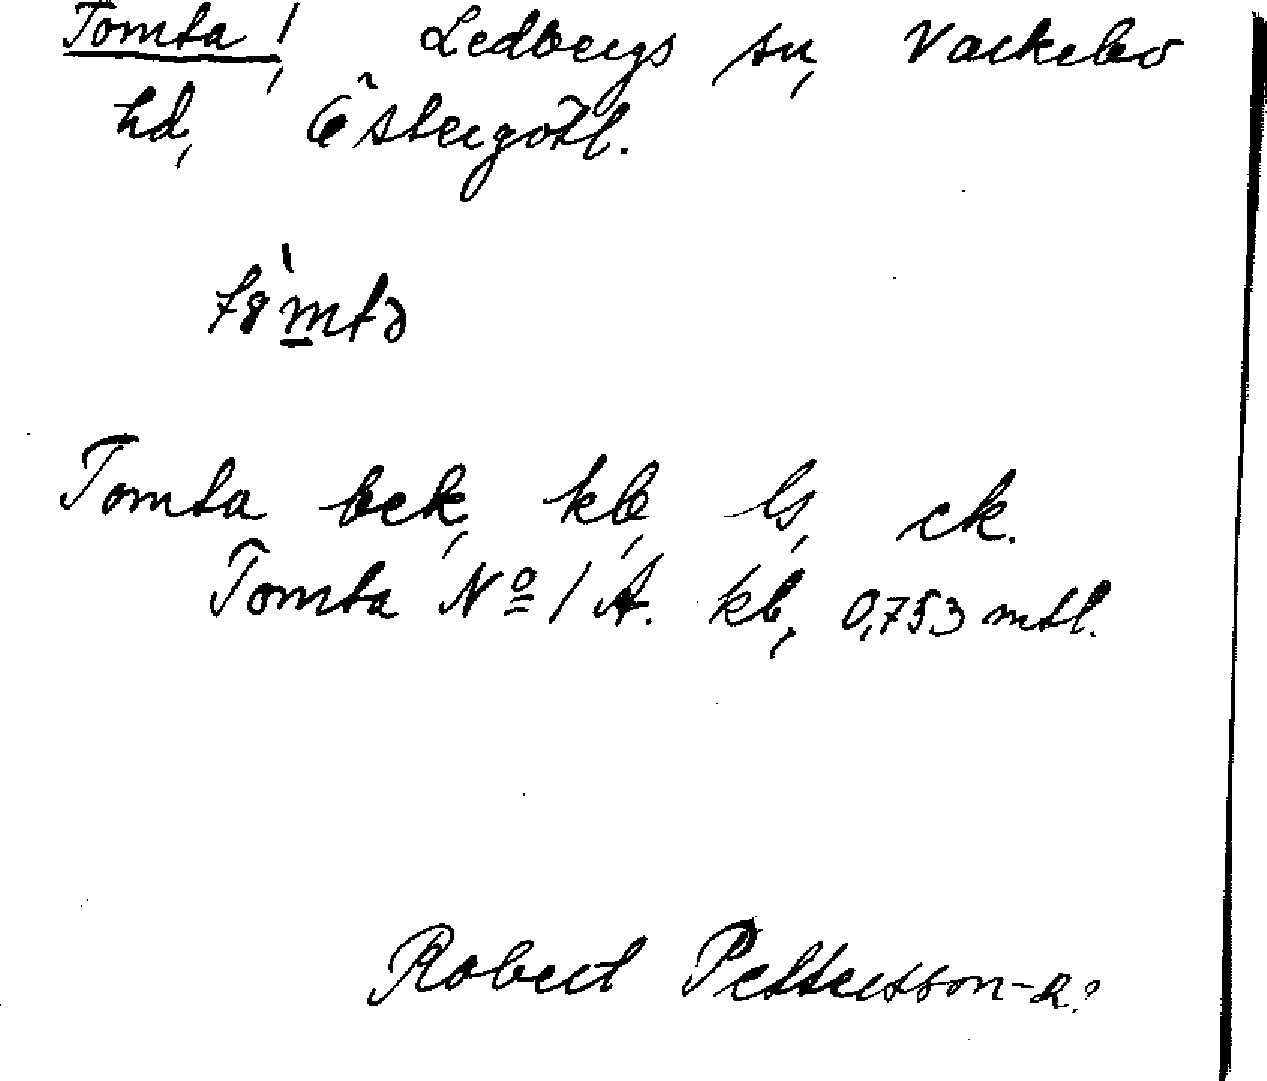 Tomta!, Ledbergs sn, Valkebo
hd, Östergötl.
Tomta bek, kb, ls, ek.
Tomta Nº 1 A. kb, 0,753 mtl.
Robert Pettersson